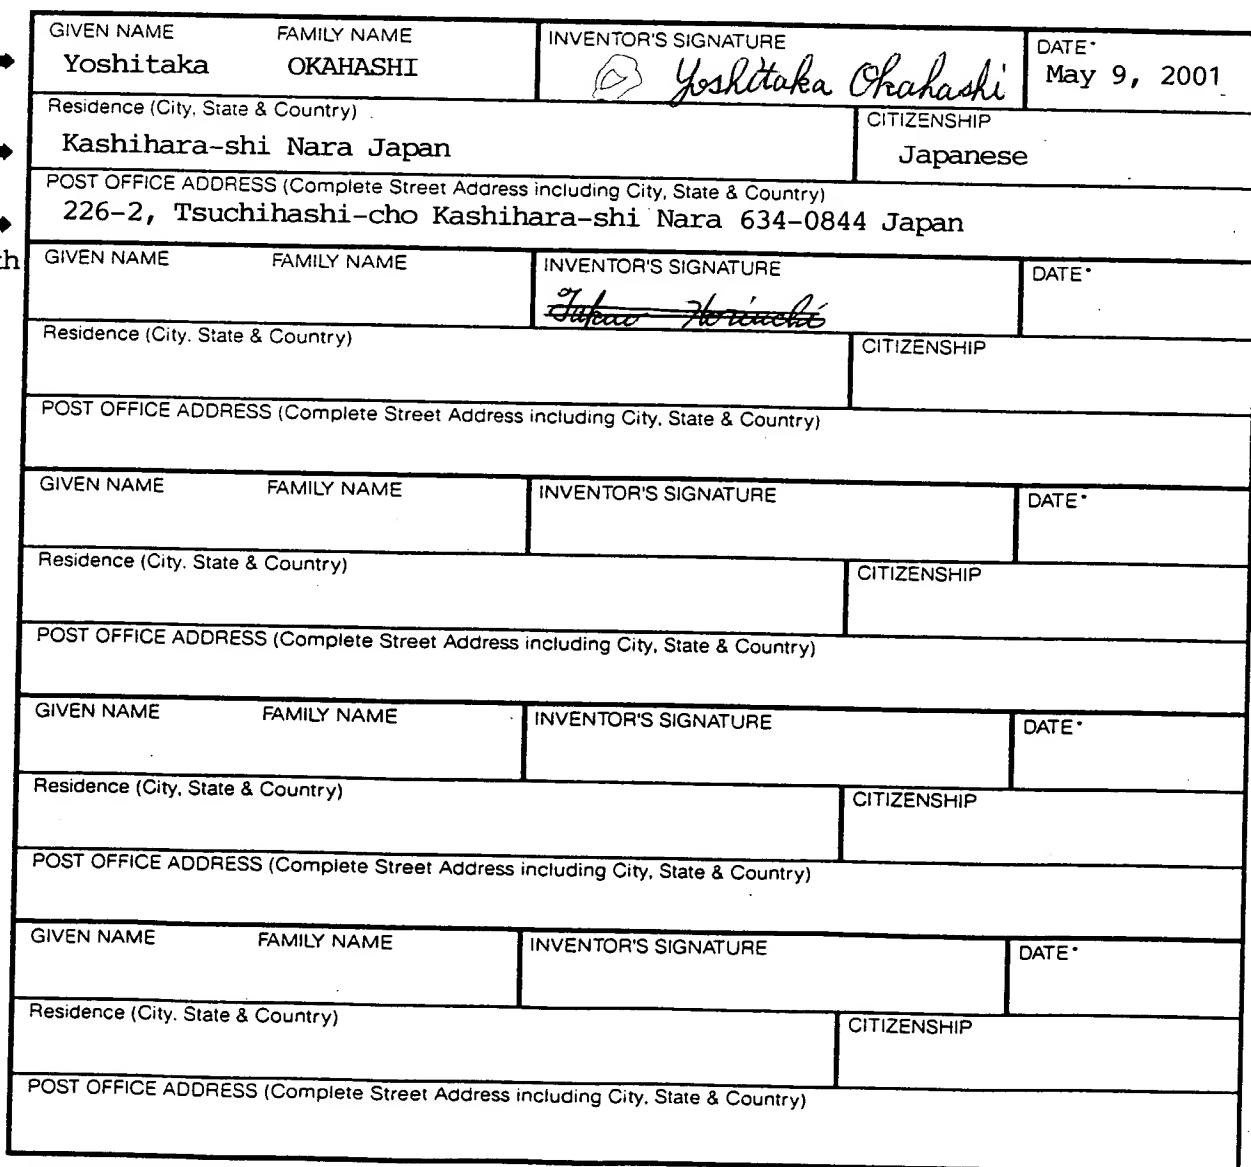 GIVEN NAME FAMILY NAME INVENTOR'S SIGNATURE DATE*
Yoshitaka OKAHASHI Yoshitaka Okahashi May 9, 2001
Residence (City, State & Country) CITIZENSHIP
Kashihara-shi Nara Japan Japanese
POST OFFICE ADDRESS (Complete Street Address including City, State & Country)
226-2, Tsuchihashi-cho Kashihara-shi Nara 634-0844 Japan
GIVEN NAME FAMILY NAME INVENTOR'S SIGNATURE DATE*
Takao Horiuchi
Residence (City. State & Country) CITIZENSHIP
POST OFFICE ADDRESS (Complete Street Address including City, State & Country)
GIVEN NAME FAMILY NAME INVENTOR'S SIGNATURE DATE*
Residence (City. State & Country) CITIZENSHIP
POST OFFICE ADDRESS (Complete Street Address including City, State & Country)
GIVEN NAME FAMILY NAME INVENTOR'S SIGNATURE DATE*
Residence (City, State & Country) CITIZENSHIP
POST OFFICE ADDRESS (Complete Street Address including City, State & Country)
GIVEN NAME FAMILY NAME INVENTOR'S SIGNATURE DATE*
Residence (City. State & Country) CITIZENSHIP
POST OFFICE ADDRESS (Complete Street Address including City, State & Country)